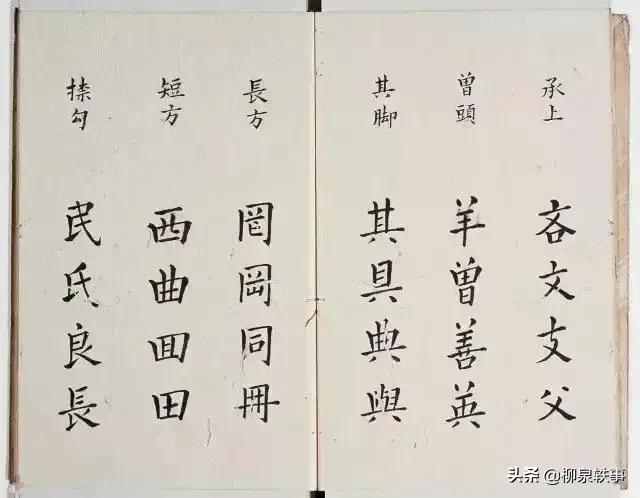 承上
吝文支父
曾頭
羊曾善英
其脚
其具典與
長方
罔岡同冊
短方
西曲囬田
捺勾
民氏良長
头条 @柳泉轶事